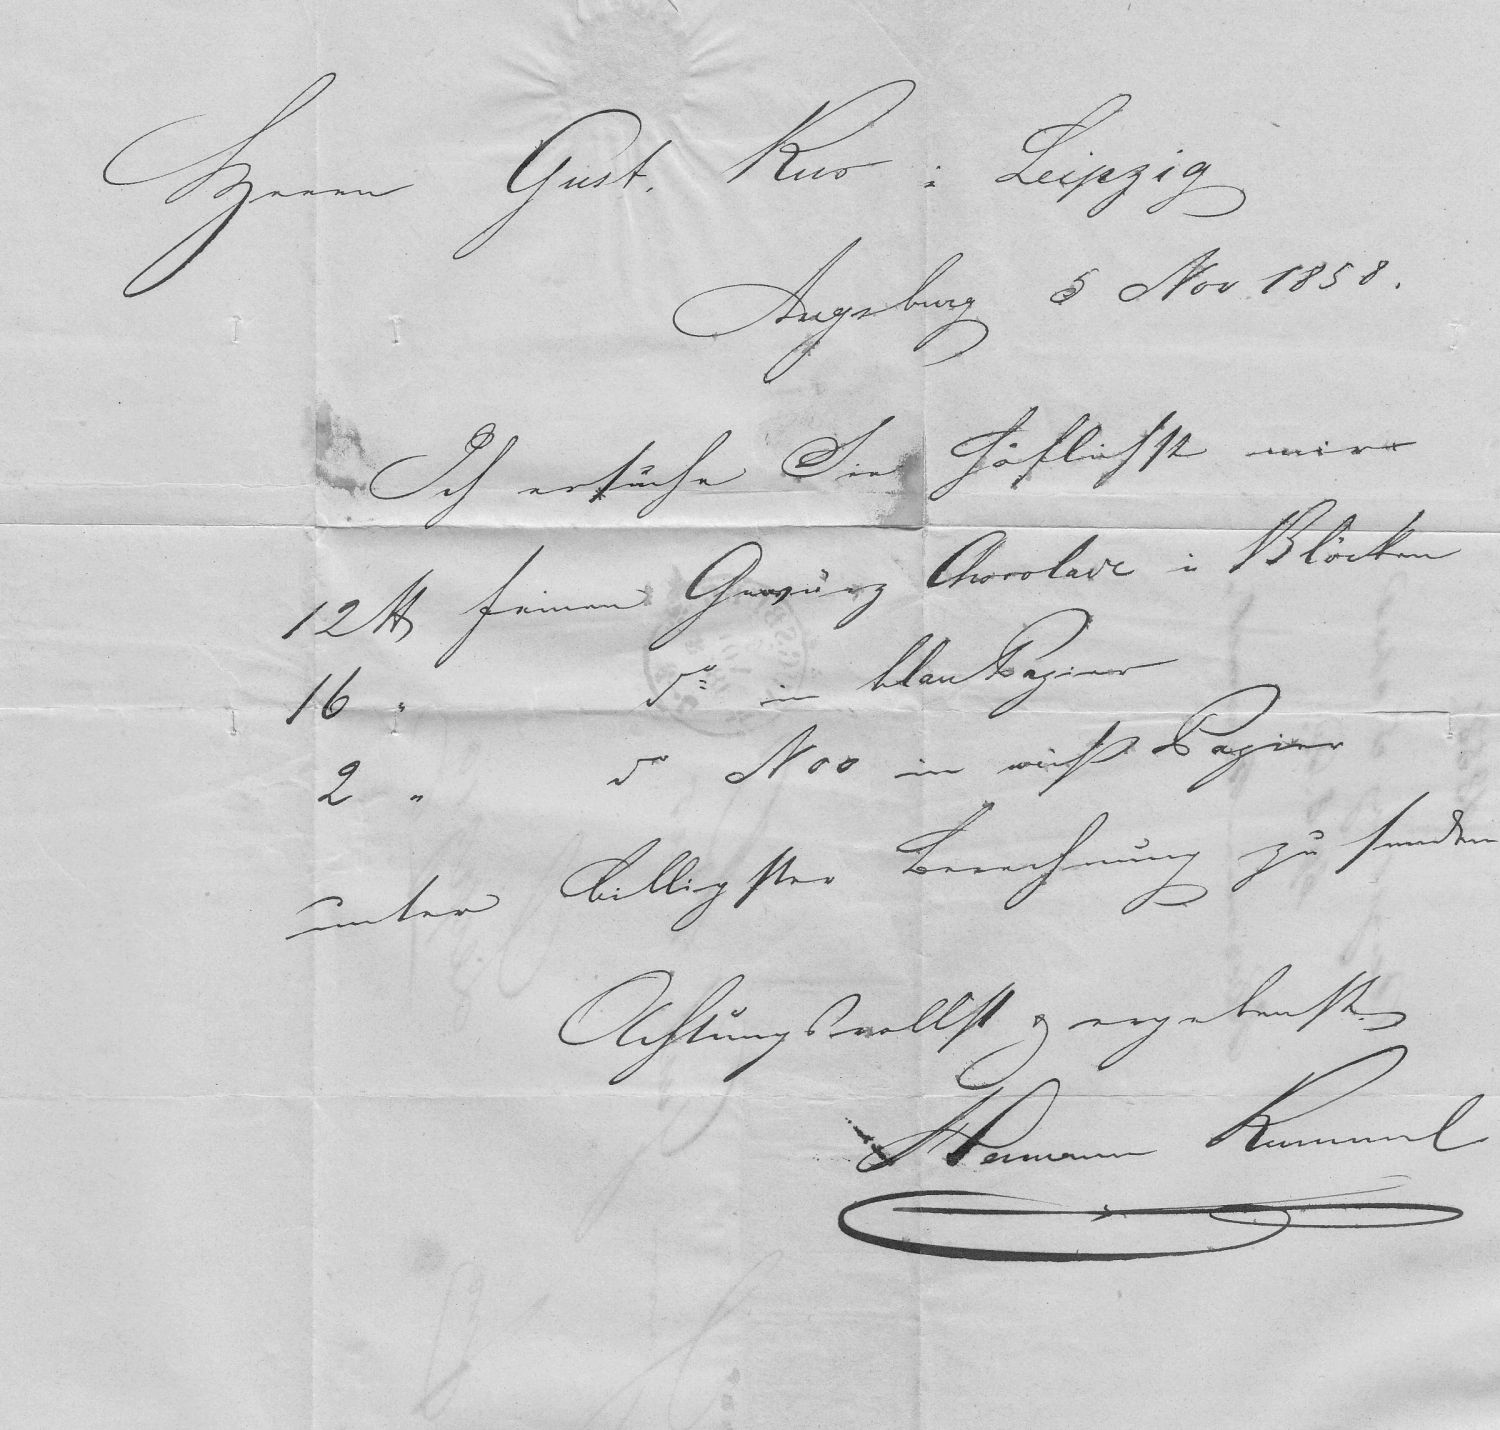 Herrn Gust. Kus in Leipzig
Augsburg 5 Nov 1858.
Ich ersuche Sie höflichst mir
12 ℔ feinen Gewürz Chocolade in Blöcken
16 " do in blau Papier
2 " do No 0 in weiß Papier
unter billigster Berechnung zu senden
Achtungsvollst & ergebenst
Hermann Kummel